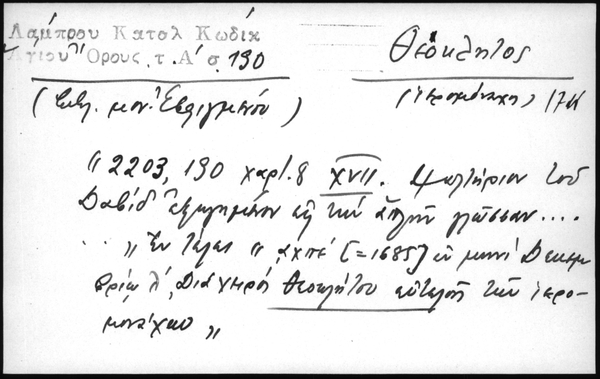 Λάμπρου Κατολ Κωδικ
Ἁγίου Ὄρους. τ. Α΄ σ. 190
Θεόκλητος
(Βιβλ. μον. Ἐσφιγμένου)
(ἱερομόναχος) 17 αι
"2203, 190 χαρτ. 8 XVII. Ψαλτήριον τοῦ
Δαβίδ ἐξηγημένον εἰς τὴν ἁπλῆν γλῶσσαν....
.. "Ἐν τέλει "αχπέ [=1685] ἐν μηνὶ Δεκεμ
βρίῳ λ΄, Διὰ χειρὸς Θεοκλήτου τοῦ ἱερο-
μονάχου"